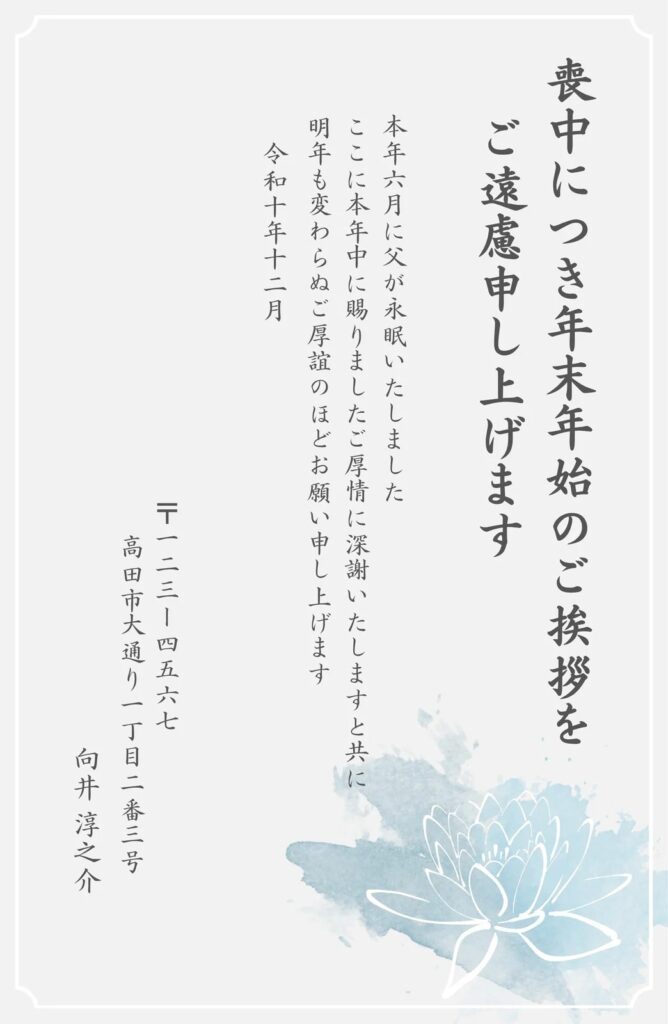 喪中につき年末年始のご挨拶を
ご遠慮申し上げます
本年六月に父が永眠いたしました
ここに本年中に賜りましたご厚情に深謝いたしますと共に
明年も変わらぬご厚誼のほどお願い申し上げます
令和十年十二月
〒一二三ー四五六七
高田市大通り一丁目二番三号
向井 淳之介